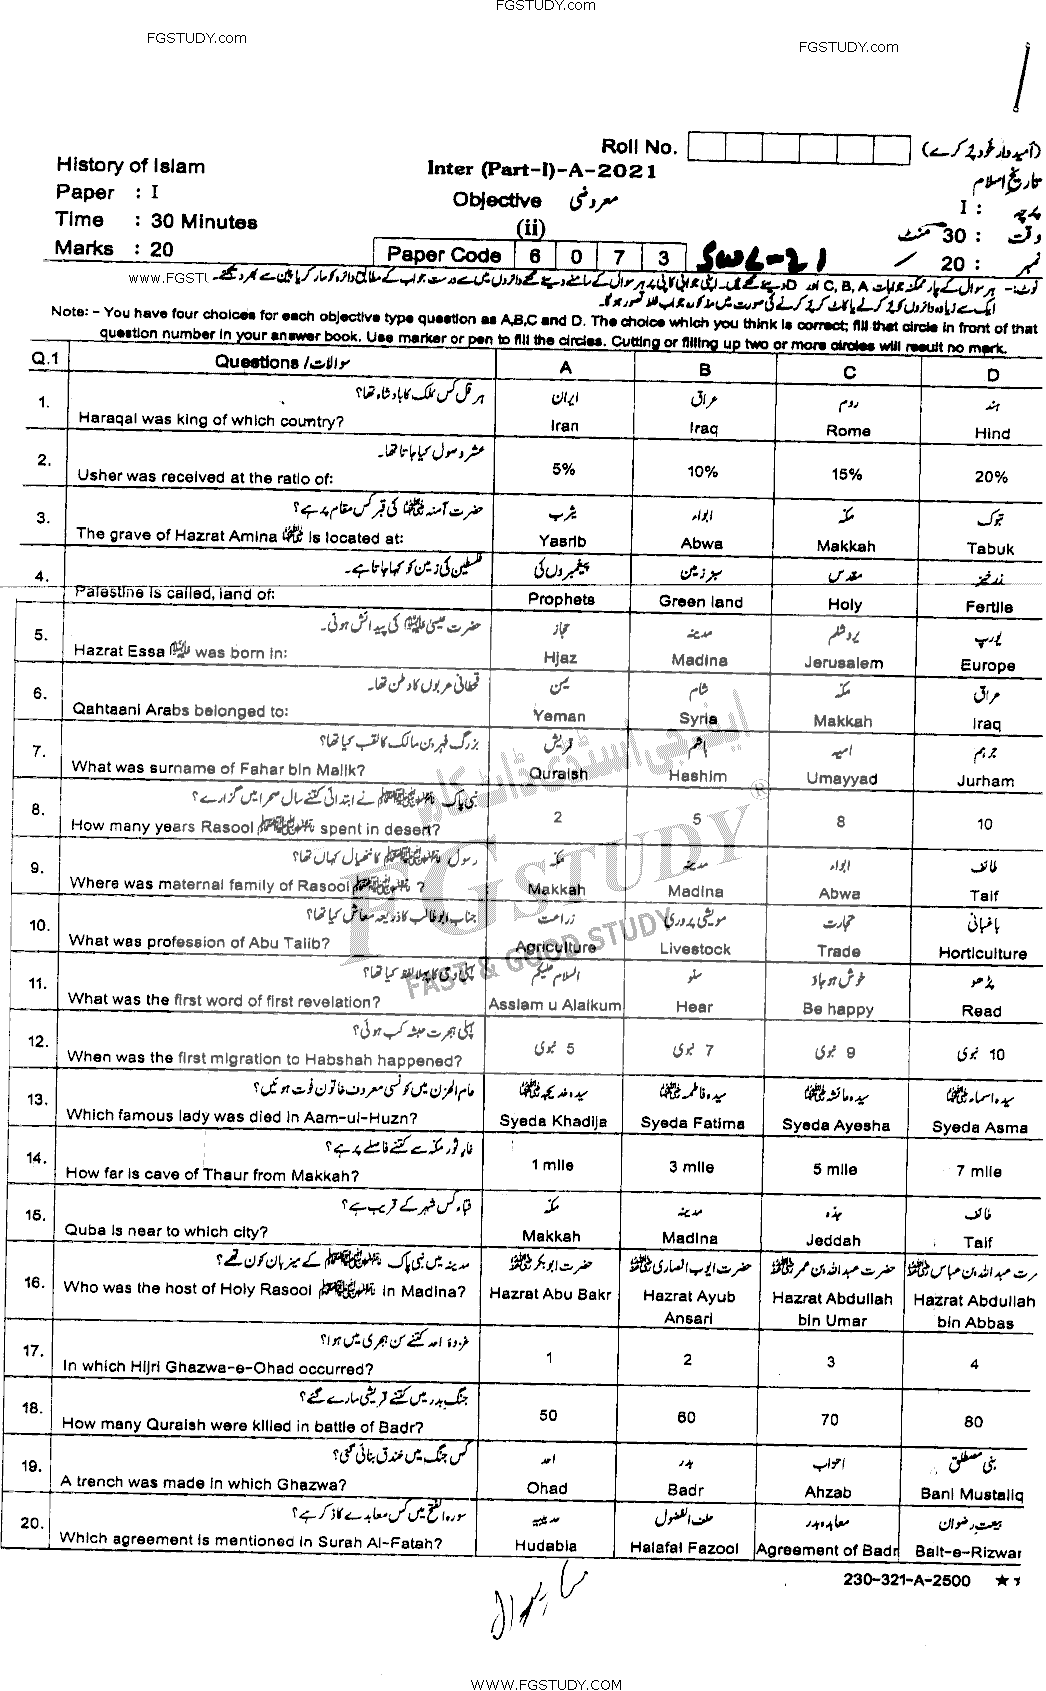 FGSTUDY.com
FGSTUDY.com
FGSTUDY.com
Roll No. (امیدوار خود پُر کرے)
History of Islam Inter (Part-I)-A-2021 تاریخ اسلام
Paper : I Objective معروضی پرچہ : I
Time : 30 Minutes (ii) وقت : 30 منٹ
Marks : 20 Paper Code 6 0 7 3 SWL-21 نمبر : 20
WWW.FGSTU نوٹ:- ہر سوال کے چار ممکنہ جوابات C, B, A اور D دیئے گئے ہیں۔ اپنی جوابی کاپی پر ہر سوال کے سامنے دیئے گئے دائروں میں سے درست جواب کے مطابق دائرہ کو مارکر یا پین سے بھر دیجئے۔
ایک سے زیادہ دائروں کو پُر کرنے یا کاٹ کر پُر کرنے کی صورت میں مذکورہ جواب غلط تصور ہو گا۔
Note: - You have four choices for each objective type question as A,B,C and D. The choice which you think is correct; fill that circle in front of that
question number in your answer book. Use marker or pen to fill the circles. Cutting or filling up two or more circles will result no mark.
Q.1 Questions / سوالات A B C D
1. ہرقل کس ملک کا بادشاہ تھا؟ ایران عراق روم ہند
Haraqal was king of which country? Iran Iraq Rome Hind
2. عشر وصول کیا جاتا تھا۔
Usher was received at the ratio of: 5% 10% 15% 20%
3. حضرت آمنہ کی قبر کس مقام پر ہے؟ یثرب ابواء مکہ تبوک
The grave of Hazrat Amina is located at: Yasrib Abwa Makkah Tabuk
4. فلسطین کی زمین کو کہا جاتا ہے۔ پیغمبروں کی سبز زمین مقدس زرخیز
Palestine is called, land of: Prophets Green land Holy Fertile
5. حضرت عیسیٰ کی پیدائش ہوئی۔ حجاز مدینہ یروشلم یورپ
Hazrat Essa was born in: Hjaz Madina Jerusalem Europe
6. قحطانی عربوں کا وطن تھا۔ یمن شام مکہ عراق
Qahtaani Arabs belonged to: Yeman Syria Makkah Iraq
7. بزرگ فہر بن مالک کا لقب کیا تھا؟ قریش ہاشم امیہ جرہم
What was surname of Fahar bin Malik? Quraish Hashim Umayyad Jurham
8. نبی پاک ﷺ نے ابتدائی کتنے سال صحرا میں گزارے؟
How many years Rasool ﷺ spent in desert? 2 5 8 10
9. رسول ﷺ کا ننھیال کہاں تھا؟ مکہ مدینہ ابواء طائف
Where was maternal family of Rasool ﷺ ? Makkah Madina Abwa Taif
10. جناب ابو طالب کا ذریعہ معاش کیا تھا؟ زراعت مویشی پروری تجارت باغبانی
What was profession of Abu Talib? Agriculture Livestock Trade Horticulture
11. پہلی وحی کا پہلا لفظ کیا تھا؟ السلام علیکم سنو خوش ہو جاؤ پڑھو
What was the first word of first revelation? Asslam u Alaikum Hear Be happy Read
12. پہلی ہجرت حبشہ کب ہوئی؟ 5 نبوی 7 نبوی 9 نبوی 10 نبوی
When was the first migration to Habshah happened?
13. عام الحزن میں کونسی معروف خاتون فوت ہوئیں؟ سیدہ خدیجہ سیدہ فاطمہ سیدہ عائشہ سیدہ اسماء
Which famous lady was died in Aam-ul-Huzn? Syeda Khadija Syeda Fatima Syeda Ayesha Syeda Asma
14. غار ثور مکہ سے کتنے فاصلے پر ہے؟
How far is cave of Thaur from Makkah? 1 mile 3 mile 5 mile 7 mile
15. قباء کس شہر کے قریب ہے؟ مکہ مدینہ جدہ طائف
Quba is near to which city? Makkah Madina Jeddah Taif
16. مدینہ میں نبی پاک ﷺ کے میزبان کون تھے؟ حضرت ابوبکر حضرت ایوب انصاری حضرت عبداللہ بن عمر رت عبداللہ بن عباس
Who was the host of Holy Rasool ﷺ in Madina? Hazrat Abu Bakr Hazrat Ayub Ansari Hazrat Abdullah bin Umar Hazrat Abdullah bin Abbas
17. غزوہ احد کتنے سن ہجری میں ہوا؟
In which Hijri Ghazwa-e-Ohad occurred? 1 2 3 4
18. جنگ بدر میں کتنے قریشی مارے گئے؟
How many Quraish were killed in battle of Badr? 50 60 70 80
19. کس جنگ میں خندق بنائی گئی؟ احد بدر احزاب بنی مصطلق
A trench was made in which Ghazwa? Ohad Badr Ahzab Bani Mustaliq
20. سورۃ الفتح میں کس معاہدے کا ذکر ہے؟ حدیبیہ حلف الفضول معاہدہ بدر بیعت رضوان
Which agreement is mentioned in Surah Al-Fatah? Hudabia Halafal Fazool Agreement of Badr Bait-e-Rizwan
ایف جی اسٹڈی ڈاٹ کام
FGSTUDY ®
FAST & GOOD STUDY
230-321-A-2500
WWW.FGSTUDY.COM